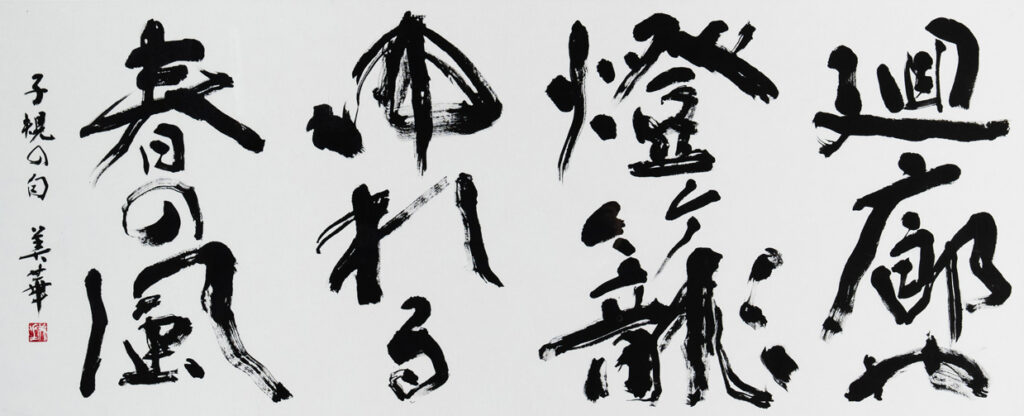 廻廊や
燈籠
ゆれる
春の風
子規の句 美華